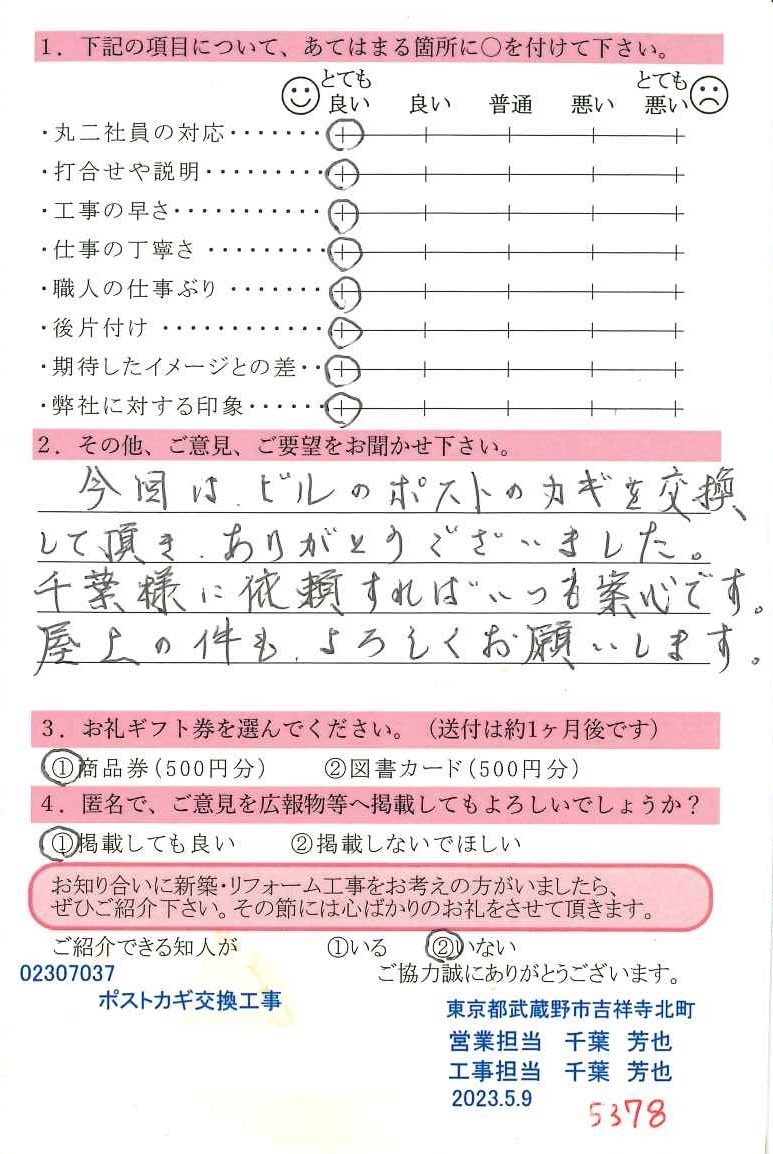 1. 下記の項目について、あてはまる箇所に〇を付けて下さい。
とても良い 良い 普通 悪い とても悪い
・丸二社員の対応・・・・・・・
・打合せや説明・・・・・・・・・
・工事の早さ・・・・・・・・・・・
・仕事の丁寧さ ・・・・・・・・・
・職人の仕事ぶり ・・・・・・・
・後片付け ・・・・・・・・・・・・
・期待したイメージとの差・・
・弊社に対する印象・・・・・・
2. その他、ご意見、ご要望をお聞かせ下さい。
今回は、ビルのポストのカギを交換
して頂き、ありがとうございました。
千葉様に依頼すればいつも安心です。
屋上の件も、よろしくお願いします。
3. お礼ギフト券を選んでください。（送付は約1ヶ月後です）
①商品券（500円分） ②図書カード（500円分）
4. 匿名で、ご意見を広報物等へ掲載してもよろしいでしょうか？
①掲載しても良い ②掲載しないでほしい
お知り合いに新築・リフォーム工事をお考えの方がいましたら、
ぜひご紹介下さい。その節には心ばかりのお礼をさせて頂きます。
ご紹介できる知人が ①いる ②いない
02307037 ご協力誠にありがとうございます。
ポストカギ交換工事
東京都武蔵野市吉祥寺北町
営業担当 千葉 芳也
工事担当 千葉 芳也
2023.5.9
5378